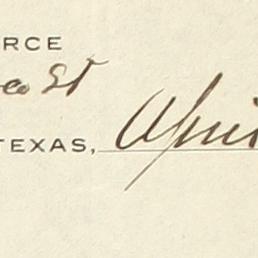 ERCE
St
TEXAS, Apri